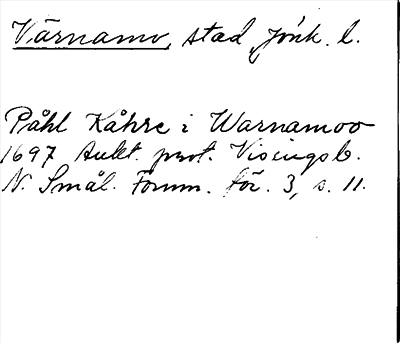 Värnamo, stad Jönk. l.
Påhl Kåhre i Warnamoo
1697 Aukt. prot. Visingsb.
N. Smål. Fornm. för. 3, s. 11.